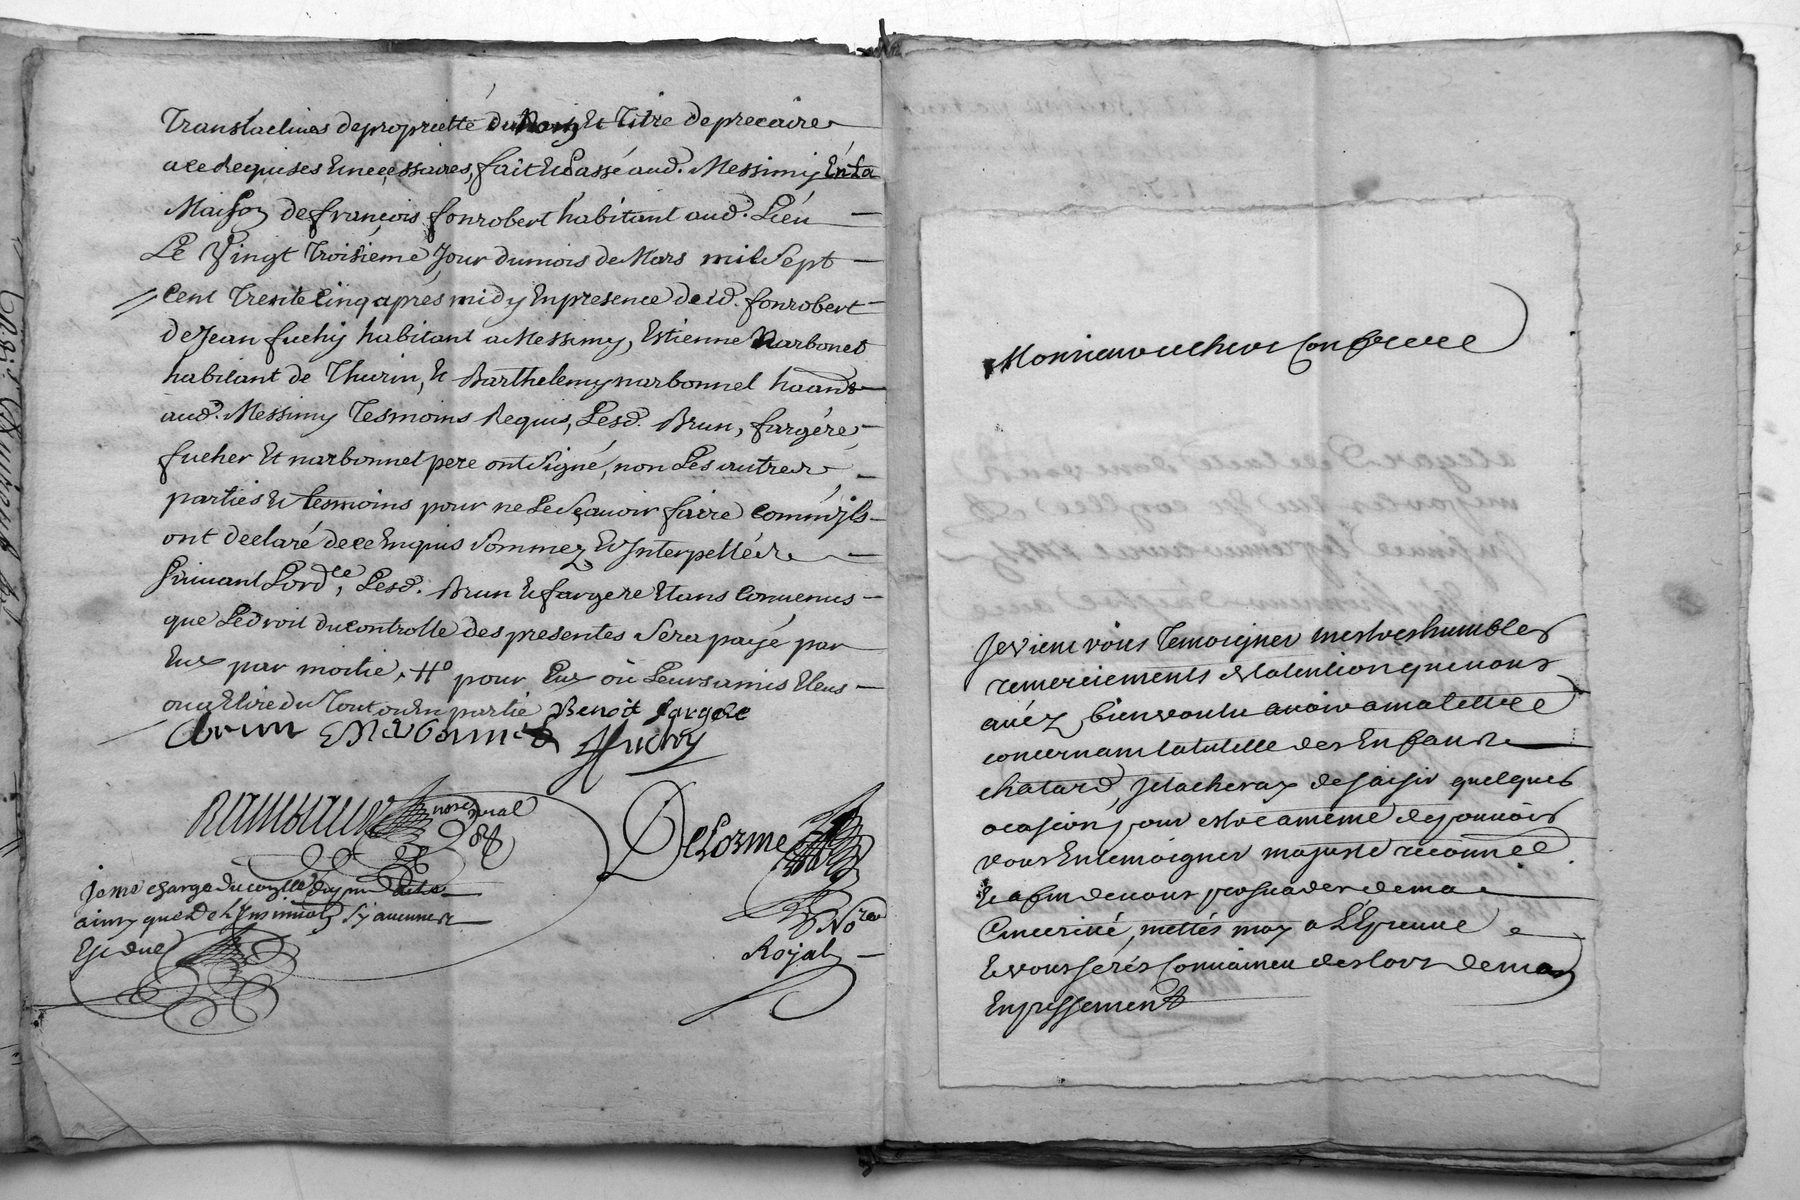 Translatives de proprietté du Et Titre de precaire
a ce Requises Et necessaires, fait Et Passé aud. Messimy En La
Maison de françois fonrobert habitant aud. Lieu
Le Vingt Troisieme Jour du mois de Mars mil Sept
Cent Trente Cinq aprés midy En presence de ud. fonrobert
de Jean fuchy habitant a Messimy, Estienne Narbonet
habitant de Thurin, Et Barthelemy narbonnel haant
aud. Messimy Tesmoins Requis, Lesd. Brun, fargére
fucher Et narbonnel pere ont Signé, non Les autres
parties Et tesmoins pour ne Le Sçavoir faire Comm'ils
ont declaré de ce Enquis Sommez Et Interpellés
Suivant Lord.ce, Lesd. Brun Et fargere Etans Convenus
que Le droit du controlle des presentes Sera payé par
Eux par moitié, pour Eux où Leurs amis Eleus
ou a Elire du Tout ou En partie Benoit fargere
Brun fuchy
Rambaud nore royal
Delorme
je me charge du conlle
ainsy que de L'Insinuaon Sy aucune
Est due
Nore
Royal
Monsieur et cher Confrere
Je viens vous Temoigner mes tres humbles
remerciements de l'atention que vous
avéz bien voulu avoir a ma lettre
concernant la tutelle des Enfants
chatard, je tacheray de saisir quelques
ocasions pour estre a meme de pouvoir
vous En temoigner ma juste reconnce
Et afin de vous persuader de ma
Cincerité, mettés moy a L'Epreuve
Et vous serés Convaincu des lors de mon
Enpressement